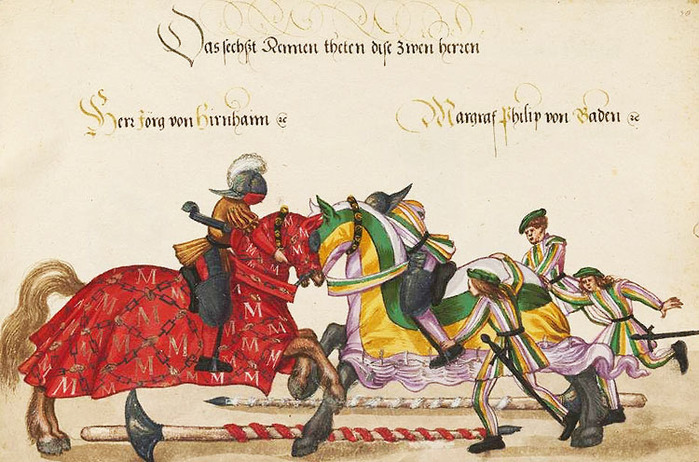 Das sechßt Rennen theten dise Zwen herren
Herr Jörg von Hirnhaim ꝛc
Margraf Philip von Baden ꝛc
M M M M M M M M M